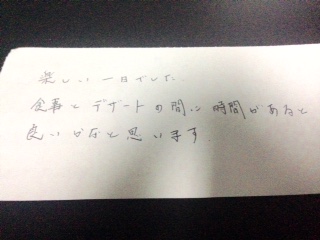 楽しい一日でした
食事とデザートの間に時間があると
良いかなと思います